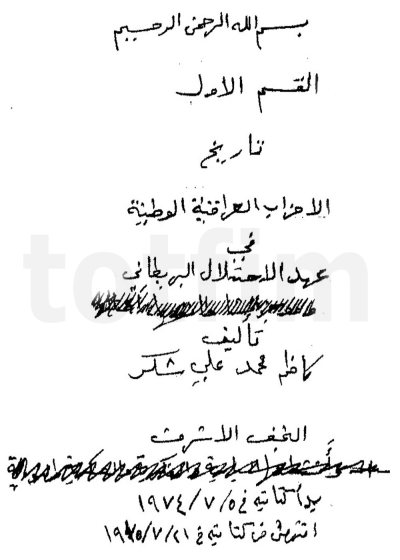 بسم الله الرحمن الرحيم
القسم الاول
تاريخ
الاحزاب العراقية الوطنية
في
عهد الاحتلال البريطاني
تأليف
كاظم محمد علي شكر
النجف الاشرف
بدأ كتابته في ١٩٧٤/٧/٥
انتهى من كتابته في
totfim